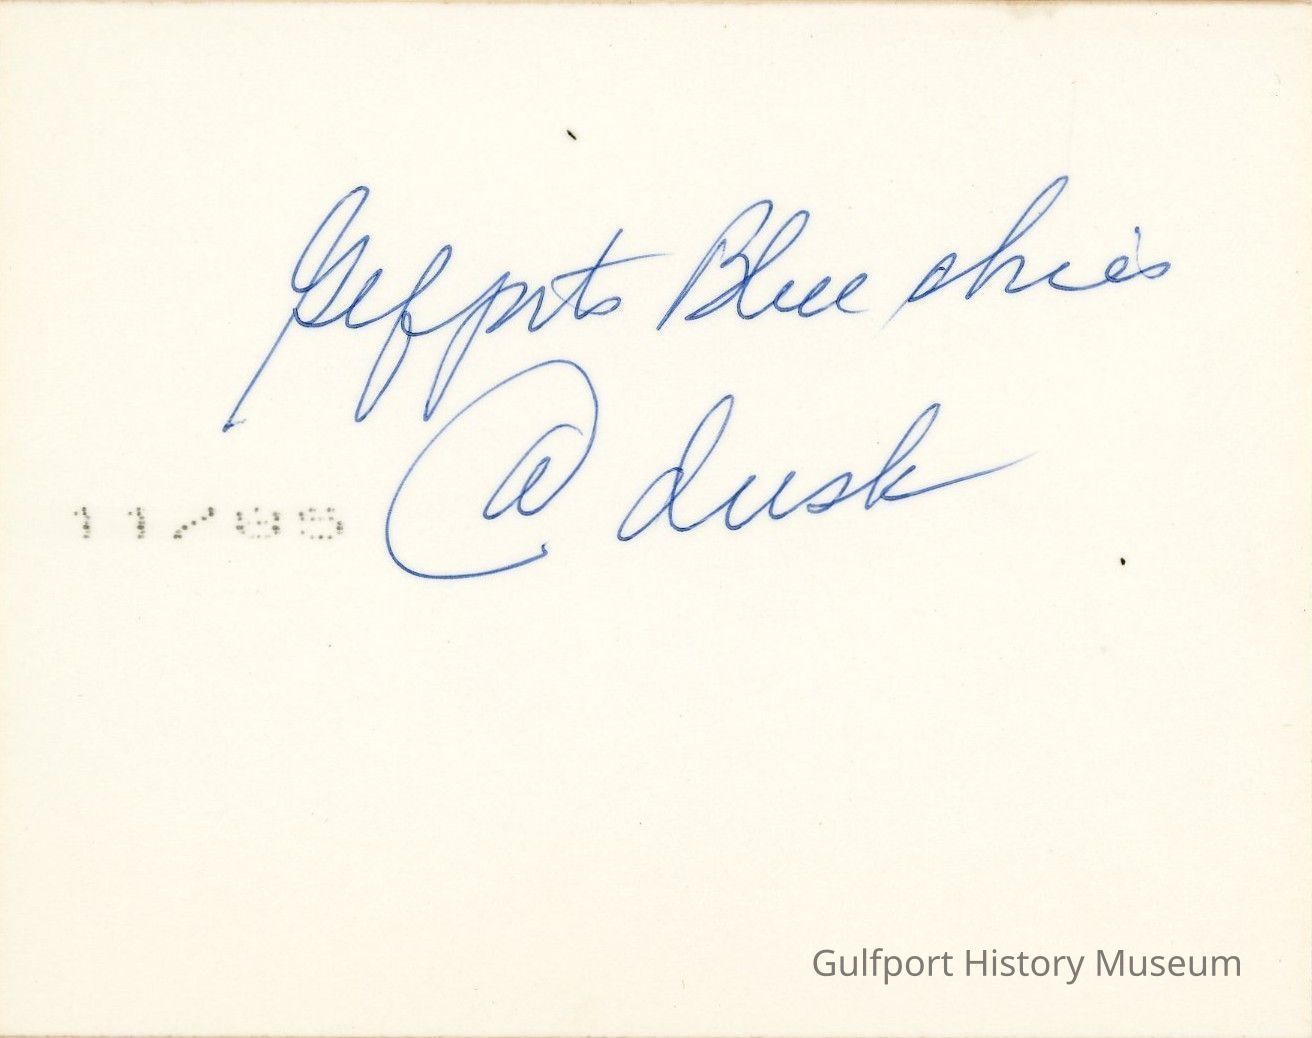 Gulfports Blue skies
@ dusk
Gulfport History Museum